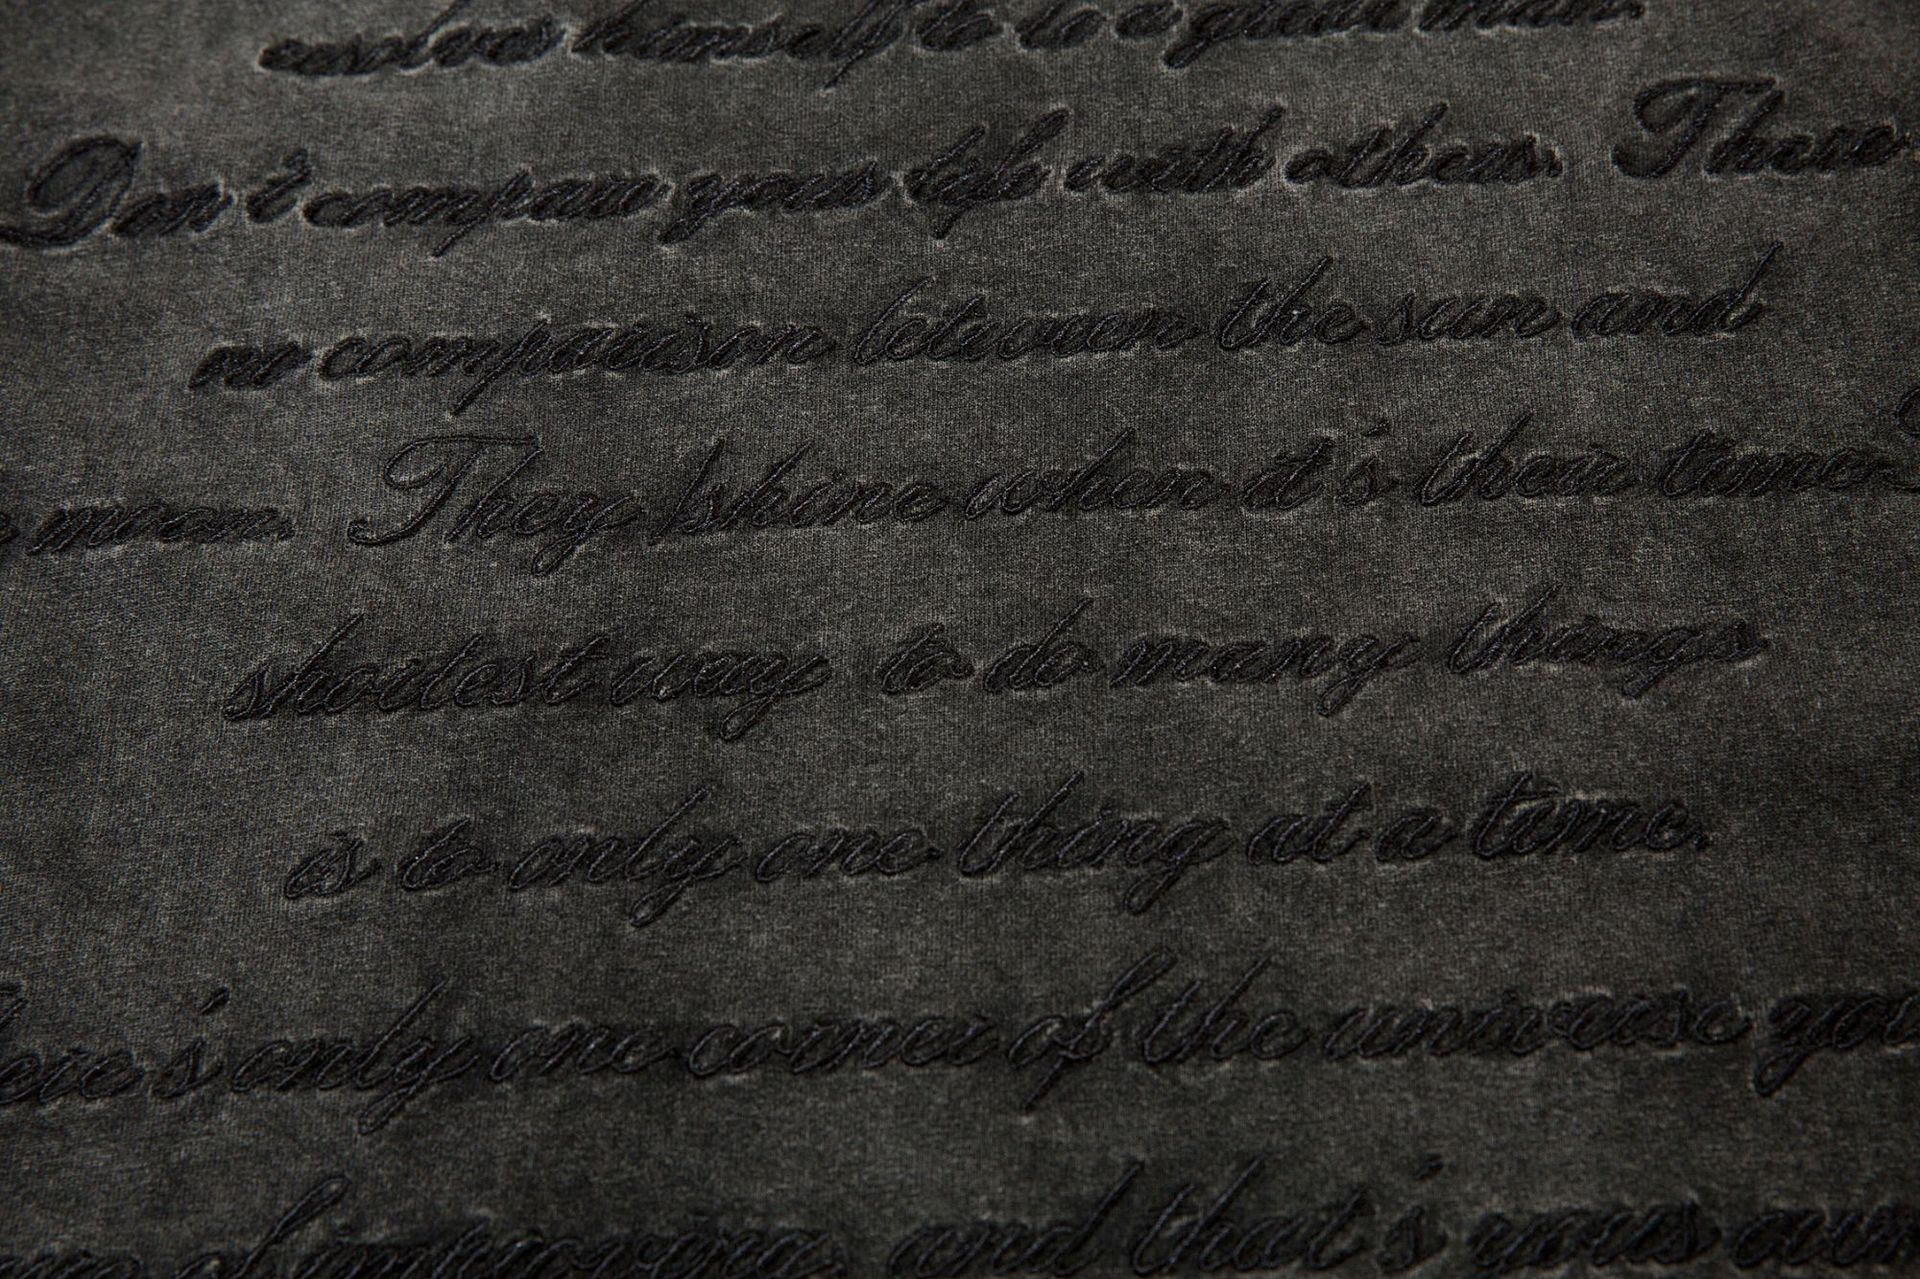 himself to be a great man.
Don't compare your life with others. There
no comparison between the sun and
moon. They shine when it's their time.
shortest way to do many things
is to only one thing at a time.
here's only one corner of the universe you
of improving, and that's your own